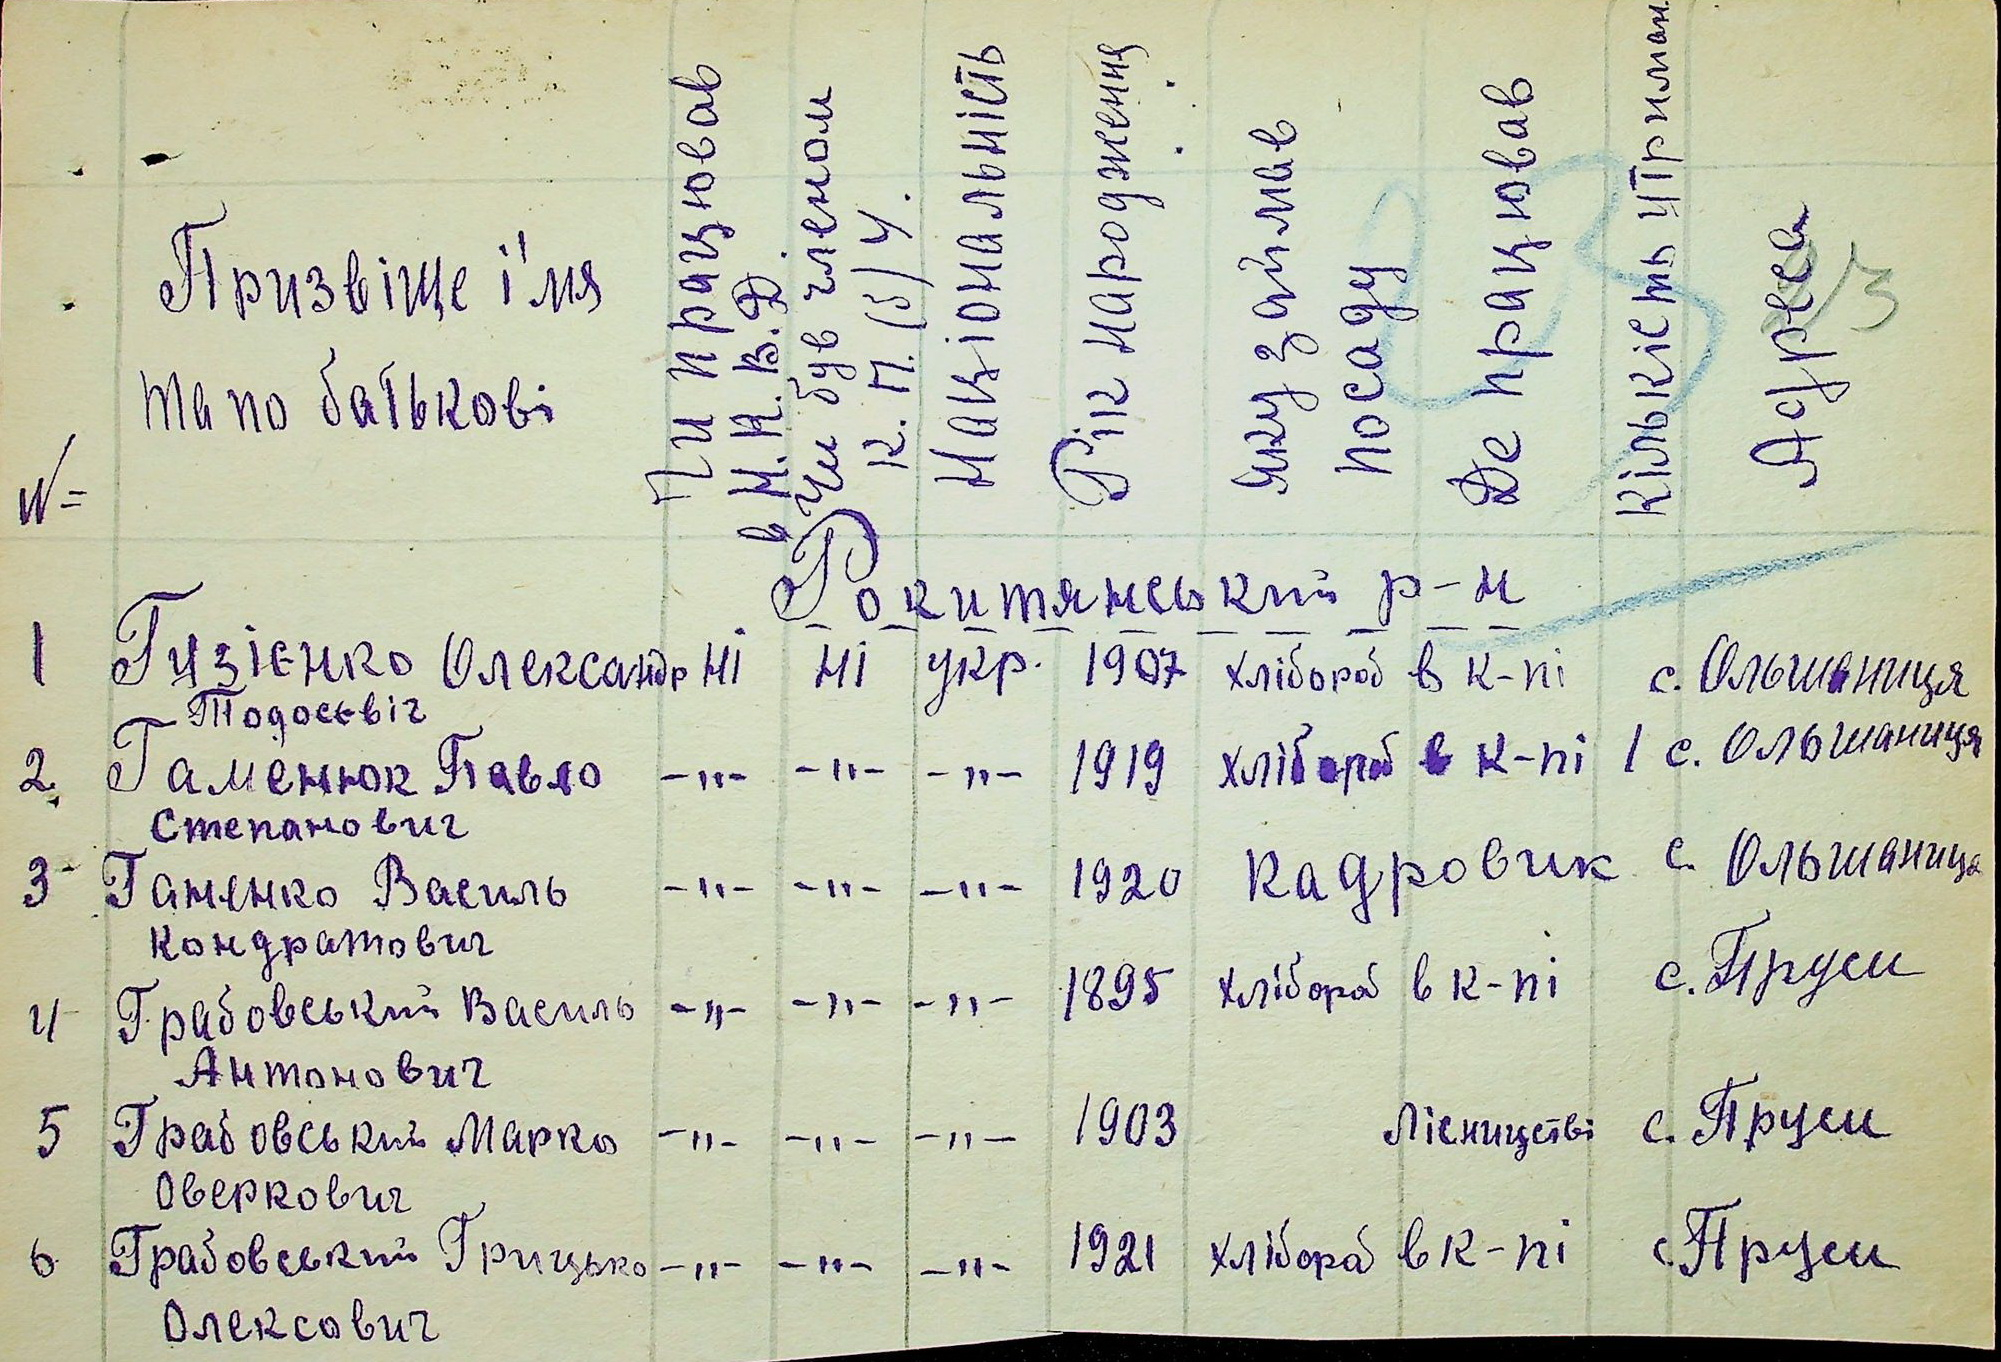 №
Призвіще і'мя
та по батькові
Чи працював
в Н.К.В.Д.
Чи був членом
К.П.(б)У.
Національність
Рік народження
Яку займав
посаду
Де працював
Кількість утриман
Адреса
Рокитянський р-н
1 Гузієнко Олександр ні ні укр. 1907 хлібороб в к-пі с. Ольшаниця
Тодосєвіч
2 Гаменюк Павло -"- -"- -"- 1919 хлібороб в к-пі 1 с. Ольшаниця
Степанович
3 Ганенко Василь -"- -"- -"- 1920 кадровик с. Ольшаниця
Кондратович
4 Грабовський Василь -"- -"- -"- 1895 хлібороб в к-пі с. Пруси
Антонович
5 Грабовський Марко -"- -"- -"- 1903 Лісництві с. Пруси
Оверкович
6 Грабовський Грицько -"- -"- -"- 1921 хлібороб в к-пі с. Пруси
Олексович